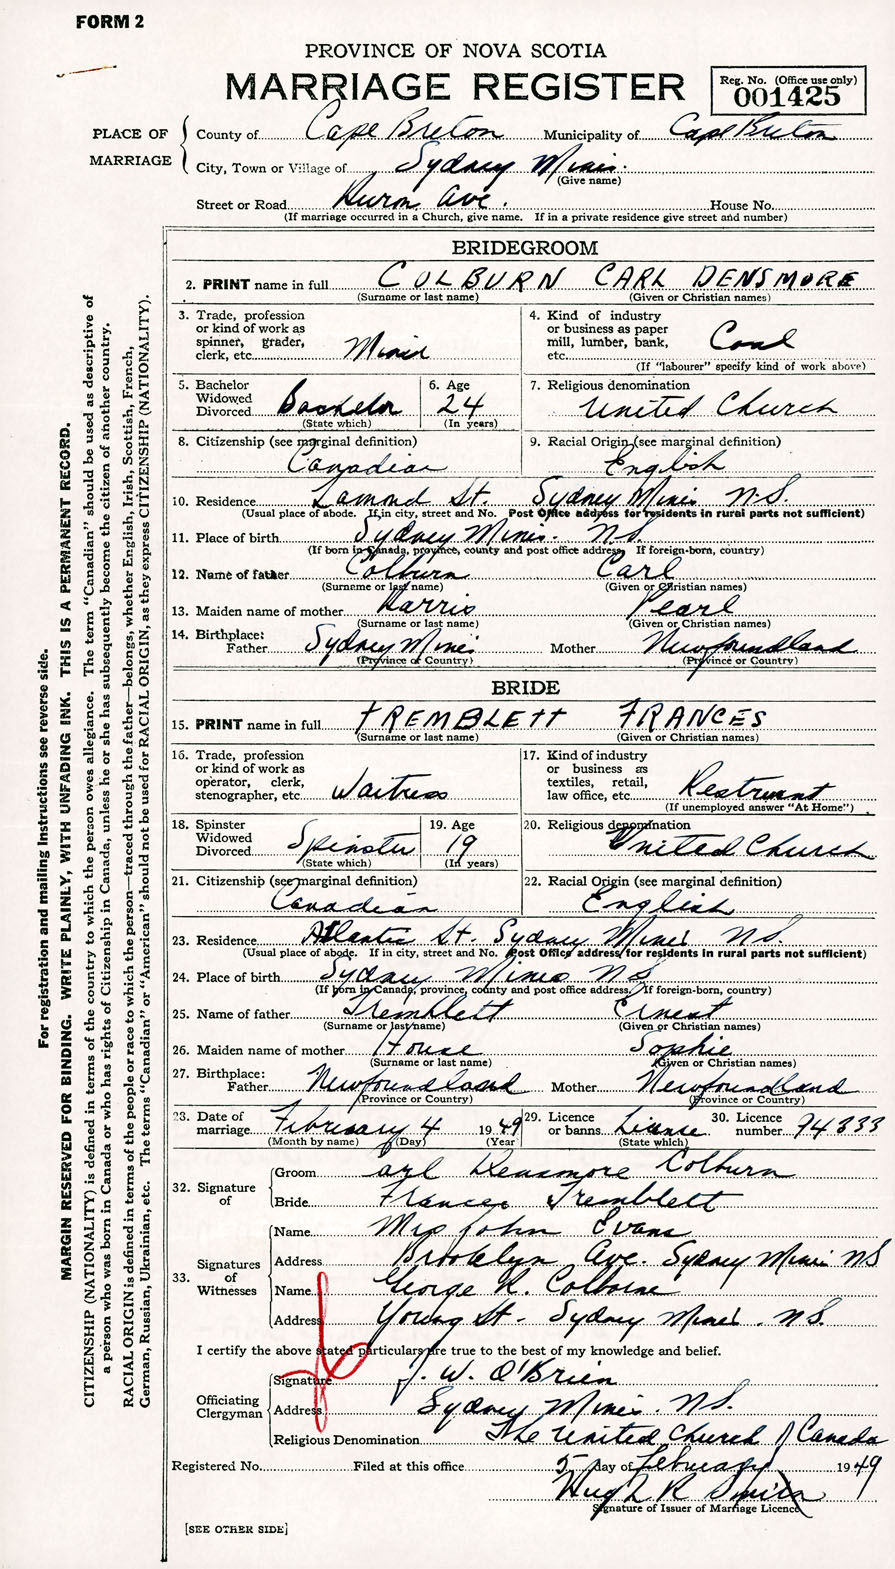 FORM 2
PROVINCE OF NOVA SCOTIA
MARRIAGE REGISTER
Reg. No. (Office use only)
001425
PLACE OF MARRIAGE
County of Cape Breton Municipality of Cape Breton
City, Town or Village of Sydney Mines.
(Give name)
Street or Road Huron Ave. House No.
(If marriage occurred in a Church, give name. If in a private residence give street and number)
BRIDEGROOM
2. PRINT name in full COLBURN CARL DENSMORE
(Surname or last name) (Given or Christian names)
3. Trade, profession or kind of work as spinner, grader, clerk, etc. Miner
4. Kind of industry or business as paper mill, lumber, bank, etc. Coal
(If "labourer" specify kind of work above)
5. Bachelor Widowed Divorced Bachelor
(State which)
6. Age 24
(In years)
7. Religious denomination United Church
8. Citizenship (see marginal definition) Canadian
9. Racial Origin (see marginal definition) English
10. Residence Lamond St. Sydney Mines N.S.
(Usual place of abode. If in city, street and No. Post Office address for residents in rural parts not sufficient)
11. Place of birth Sydney Mines. N.S.
(If born in Canada, province, county and post office address, If foreign-born, country)
12. Name of father Colburn Carl
(Surname or last name) (Given or Christian names)
13. Maiden name of mother Harris Pearl
(Surname or last name) (Given or Christian names)
14. Birthplace: Father Sydney Mines Mother Newfoundland
(Province or Country) (Province or Country)
BRIDE
15. PRINT name in full TREMBLETT FRANCES
(Surname or last name) (Given or Christian names)
16. Trade, profession or kind of work as operator, clerk, stenographer, etc. Waitress
17. Kind of industry or business as textiles, retail, law office, etc. Restrunt
(If unemployed answer "At Home")
18. Spinster Widowed Divorced Spinster
(State which)
19. Age 19
(In years)
20. Religious denomination United Church
21. Citizenship (see marginal definition) Canadian
22. Racial Origin (see marginal definition) English
23. Residence Atlantic St. Sydney Mines N.S.
(Usual place of abode. If in city, street and No. Post Office address for residents in rural parts not sufficient)
24. Place of birth Sydney Mines N.S.
(If born in Canada, province, county and post office address, If foreign-born, country)
25. Name of father Tremblett Ernest
(Surname or last name) (Given or Christian names)
26. Maiden name of mother House Sophie
(Surname or last name) (Given or Christian names)
27. Birthplace: Father Newfoundland Mother Newfoundland
(Province or Country) (Province or Country)
28. Date of marriage February 4 1949
(Month by name) (Day) (Year)
29. Licence or banns License
(State which)
30. Licence number 94333
32. Signature of
Groom Carl Densmore Colburn
Bride Frances Tremblett
33. Signatures of Witnesses
Name Mrs John Evans
Address Brooklyn Ave. Sydney Mines NS
Name George R. Colborne
Address Young St. Sydney Mines. N.S.
I certify the above stated particulars are true to the best of my knowledge and belief.
Officiating Clergyman
Signature J. W. O'Brien
Address Sydney Mines. N.S.
Religious Denomination The United Church of Canada
Registered No. Filed at this office 5 day of February 1949
Hugh R Smith
Signature of Issuer of Marriage Licence
[SEE OTHER SIDE]
For registration and mailing instructions see reverse side.
MARGIN RESERVED FOR BINDING. WRITE PLAINLY, WITH UNFADING INK. THIS IS A PERMANENT RECORD.
CITIZENSHIP (NATIONALITY) is defined in terms of the country to which the person owes allegiance. The term "Canadian" should be used as descriptive of
a person who was born in Canada or who has rights of Citizenship in Canada, unless he or she has subsequently become the citizen of another country.
RACIAL ORIGIN is defined in terms of the people or race to which the person—traced through the father—belongs, whether English, Irish, Scottish, French,
German, Russian, Ukrainian, etc. The terms "Canadian" or "American" should not be used for RACIAL ORIGIN, as they express CITIZENSHIP (NATIONALITY).